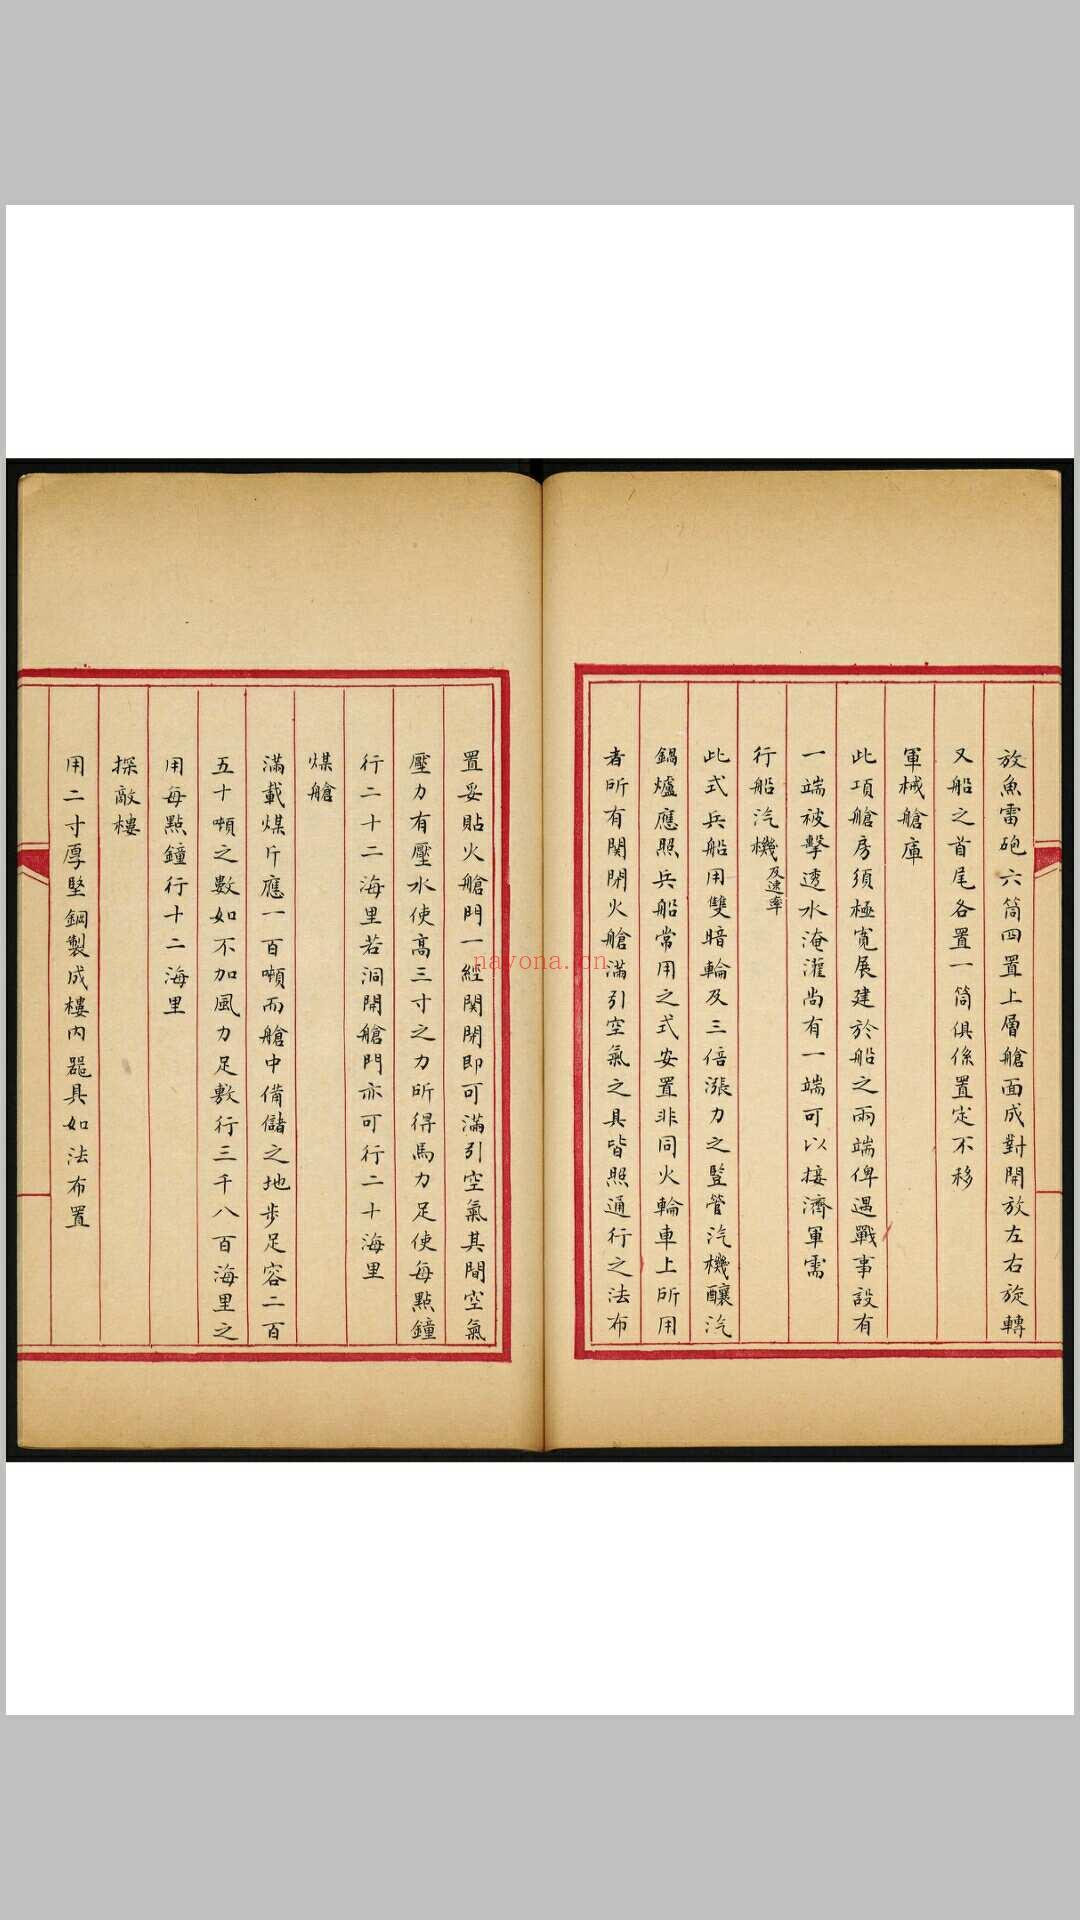 放魚雷砲六筒四置上層艙面成對開放左右旋轉
又船之首尾各置一筒俱係置定不移
軍械艙庫
此項艙房須極寬展建於船之兩端俾遇戰事設有
一端被擊透水淹灌尚有一端可以接濟軍需
行船汽機及速率
此式兵船用雙暗輪及三倍漲力之竪管汽機釀汽
鍋爐應照兵船常用之式安置非同火輪車上所用
者所有関閉火艙滿引空氣之具皆照通行之法布
置妥貼火艙門一經関閉即可滿引空氣其間空氣
壓力有壓水使高三寸之力所得馬力足使每點鐘
行二十二海里若洞開艙門亦可行二十海里
煤艙
滿載煤斤應一百噸而艙中備儲之地步足容二百
五十噸之數如不加風力足敷行三千八百海里之
用每點鐘行十二海里
探敵樓
用二寸厚堅鋼製成樓内器具如法布置
nayona.cn